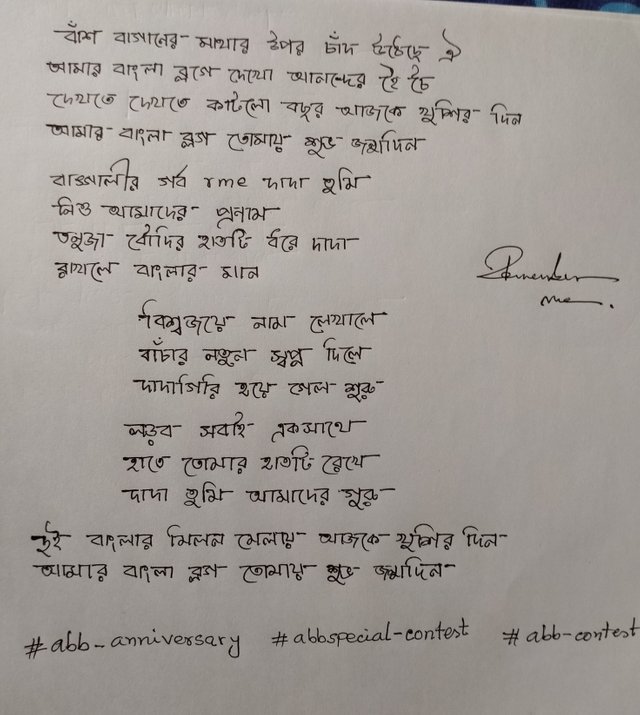 বাঁশ বাগানের মাথার উপর চাঁদ উঠেছে ঐ
আমার বাংলা ব্লগে দেখো আনন্দের হৈ চৈ
দেখতে দেখতে কাটলো বছর আজকে খুশির দিন
আমার বাংলা ব্লগ তোমায় শুভ জন্মদিন
বাঙ্গালীর গর্ব rme দাদা তুমি
নিও আমাদের প্রনাম
তনুজা বৌদির হাতটি ধরে দাদা
রাখলে বাংলার মান
Remember
me.
বিশ্বজয়ে নাম লেখালে
বাঁচার নতুন স্বপ্ন দিলে
দাদাগিরি হয়ে গেল শুরু
লড়ব সবাই একসাথে
হাতে তোমার হাতটি রেখে
দাদা তুমি আমাদের গুরু
দুই বাংলার মিলন মেলায় আজকে খুশির দিন
আমার বাংলা ব্লগ তোমায় শুভ জন্মদিন
#abb-anniversary #abbspecial-contest #abb-contest